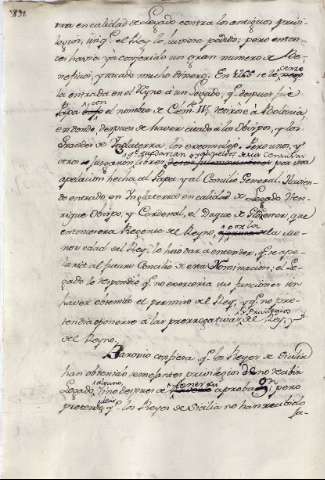 832.
ma en calidad de Legado contra los antiguos privi-
legios, sin q.e el Rey lo huviera pedido; pero enton-
ces havia ya conferido un gran numero de Be-
neficios, y sacado mucho Dinero. En 1265 se le
la entrada en el Reyno a un Legado, q.e despues fue
Papa con el nombre de Clem.te IV, retiróse à Bolonia
en donde, despues de haver citado à los Obispos, y los
Grandes de Inglaterra, los excomulgó. Pero unos, y
otros juzgaron q.e quedarian por una
apelacion hecha al Papa, y al Concilio General. Havien-
do entrado en Inglaterra en calidad de Legado Hen-
rique Obispo, y Cardenal, el Duque de Glocester, que
entonces era Regente del Reyno, por la me-
nor edad del Rey, le hizo dar a entender, q.e se ape-
laria al futuro Concilio de esta Nominacion; el Le-
gado le respondió q.e no exerceria sus funciones sin
haver obtenido el permiso del Rey, y q.e no pre-
tendia oponerse a las prerrogativas del Rey, y
privilegios
del Reyno.
Baronio confiesa q.e los Reyes de
han obtenido semejantes privilegios de no recibir
Legado alguno, sino despues de aprobaⁿ; pero
pretende q.e los Reyes de Sicilia no han recibido